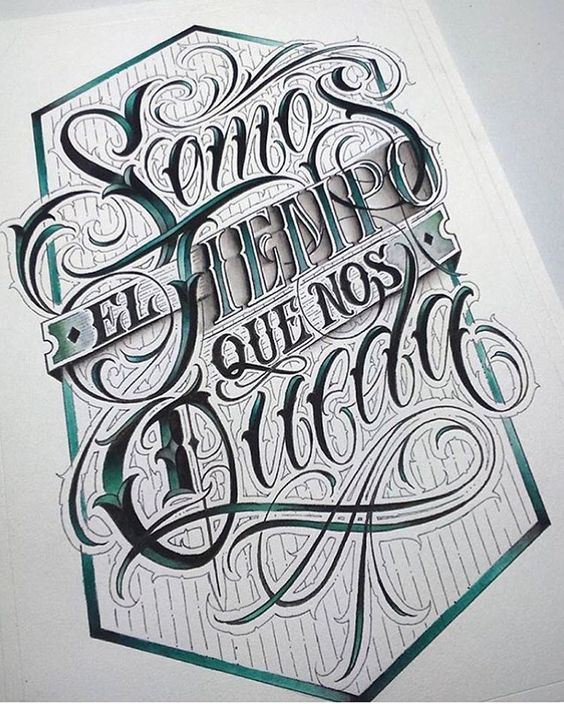 Somos
EL TIEMPO
QUE NOS
Queda